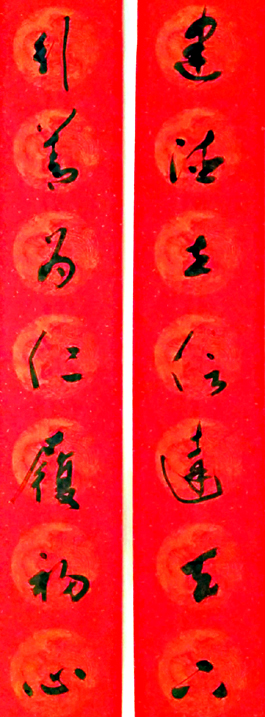 建德立信達天下
引善為仁履初心